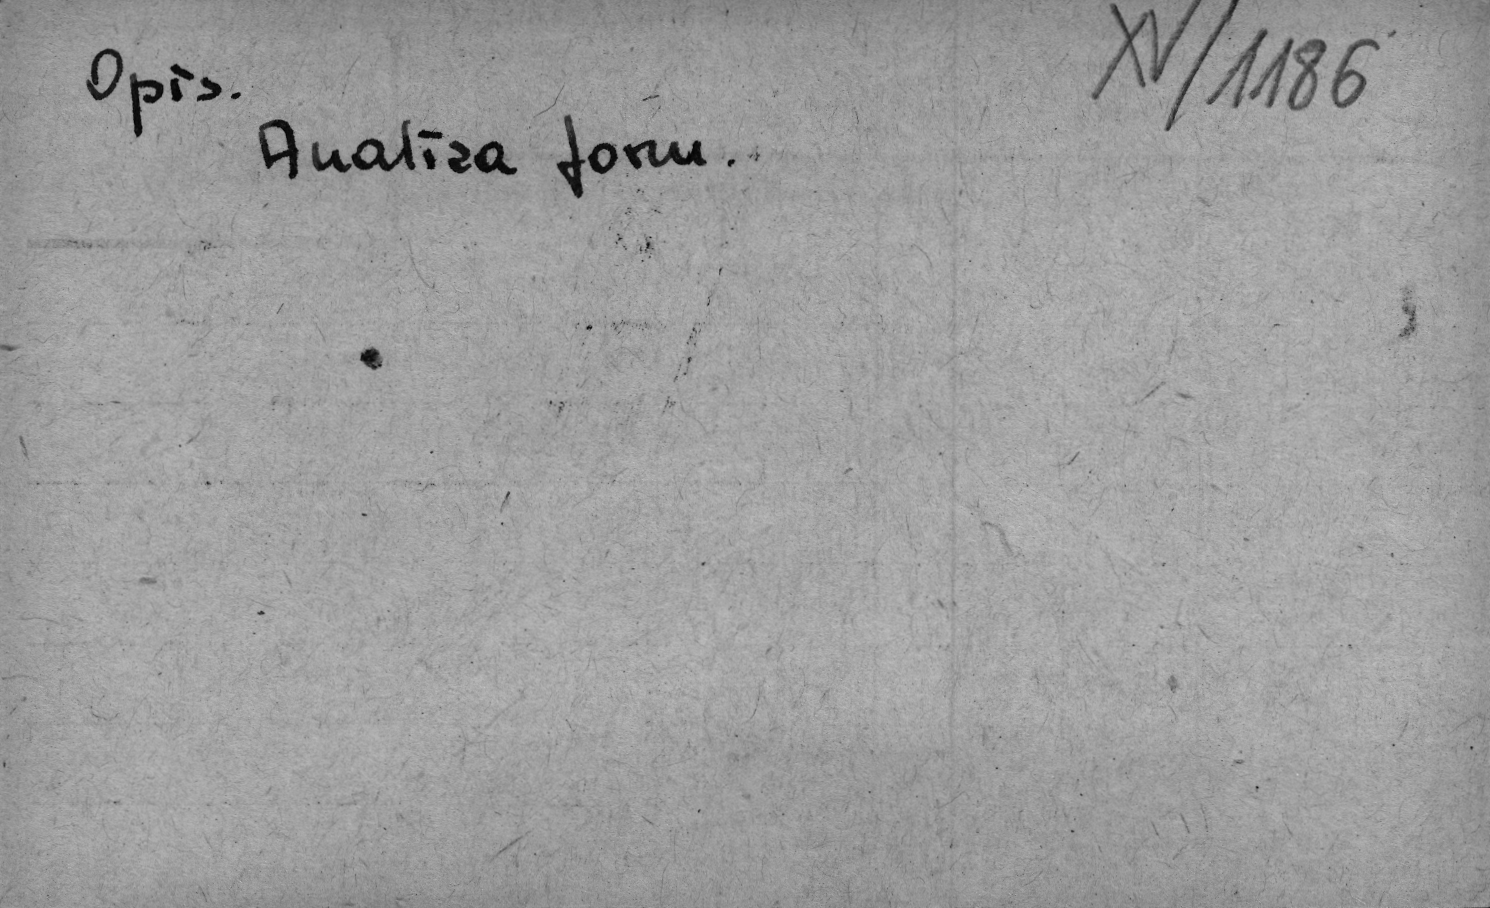 XV/1186
Opis.
Analiza form.